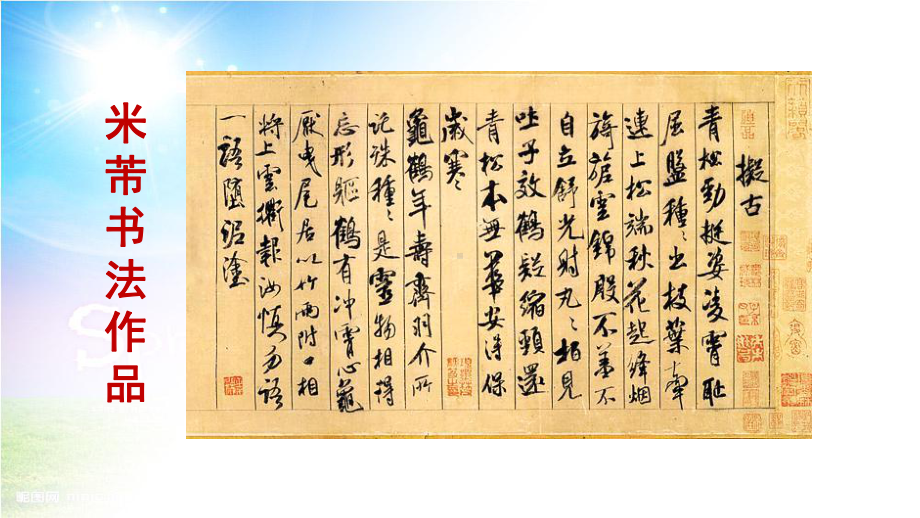 米芾书法作品
擬古
青松勁挺姿凌霄恥
屈盤種〻出枝葉牽
連上松端秋花起絳烟
旖旎雲錦殷不羞不
自立舒光射丸〻柏見
吐子效鶴疑縮頸還
青松本無華安得保
歲寒〻
龜鶴年壽齊羽介所
託殊種〻是靈物相得
忘形軀鶴有冲霄心龜
厭曳尾居以竹兩附口相
將上雲衢報汝慎勿語
一語墮泥塗
昵图网